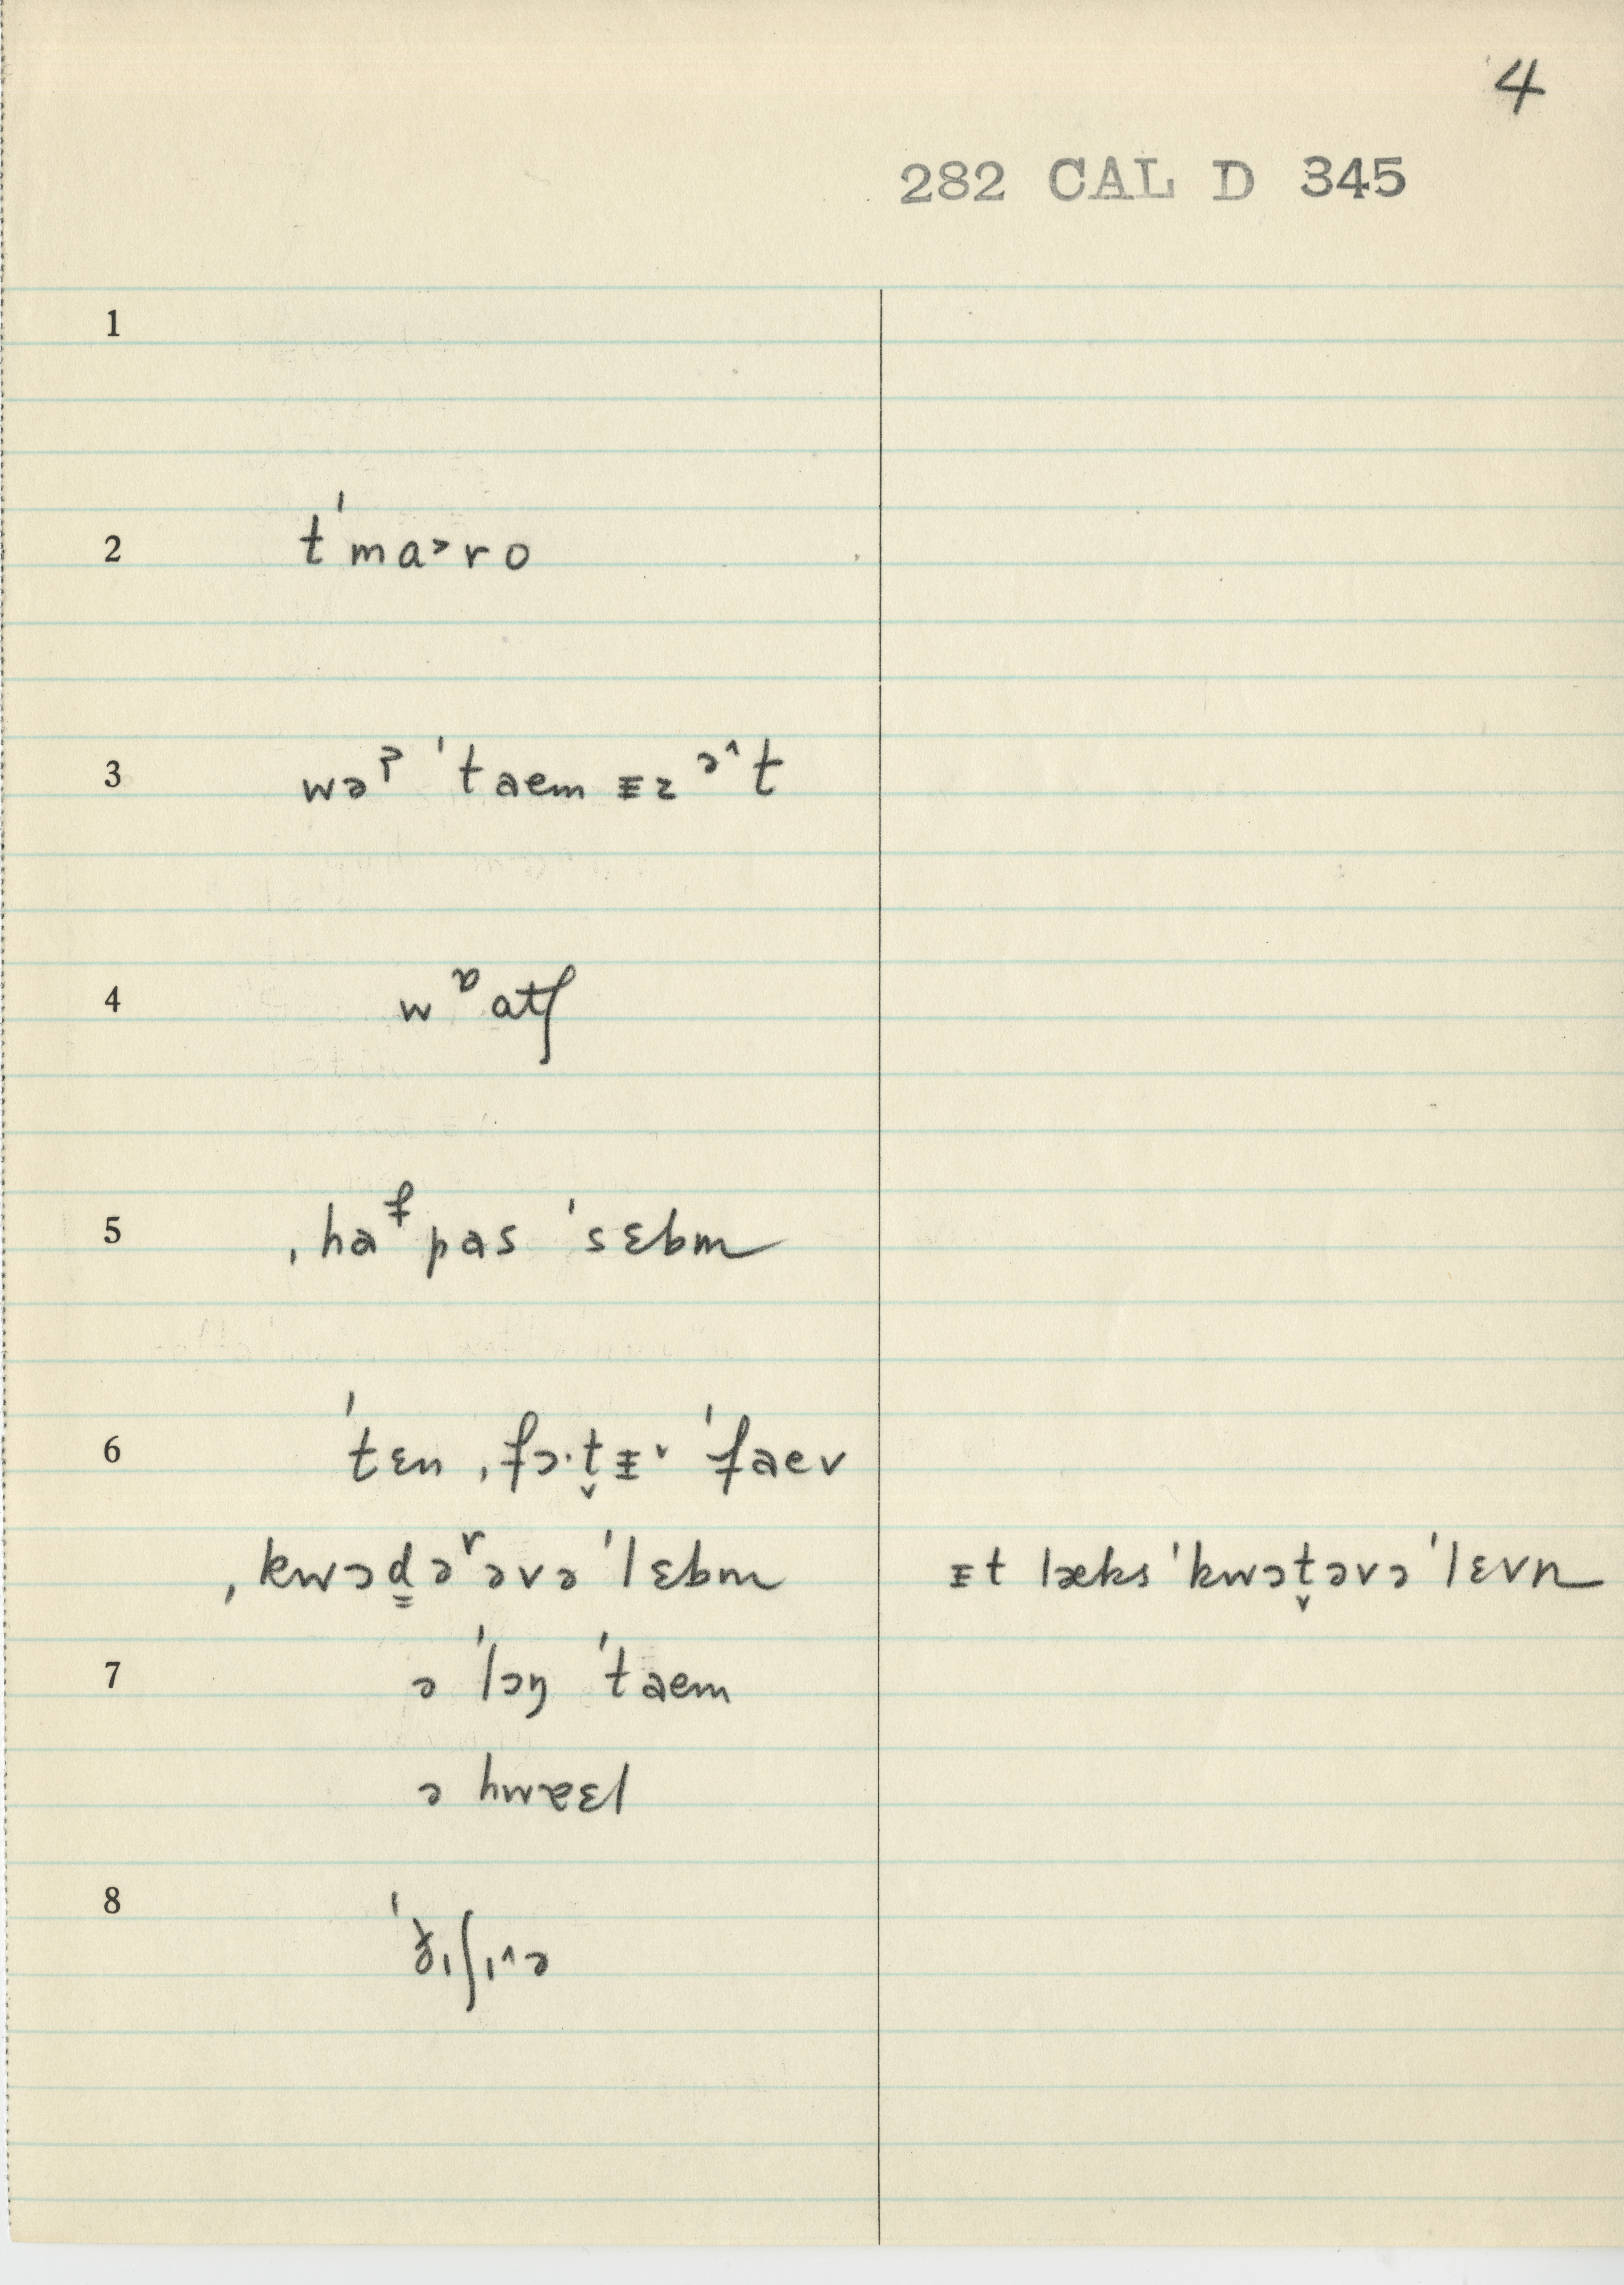 4
282 CAL D 345
1
2 tˈmɑ˃ro
3 wəˀ ˈtaem ᵻz ᵊ˄t
4 wᶛɑtʃ
5 ˌhaᶠpas ˈsɛbm
6 ˈtɛn ˌfɔ·t̬ᵻ˅ ˈfaev
ˌkwɔd̳əʳəvə ˈlɛbm ᵻt læks ˈkwɔt̬əvə ˈlɛvn
7 ə ˈlɔŋ ˈtaem
ə hwæɛl
8 ˈɟɪʃɪ˄ə